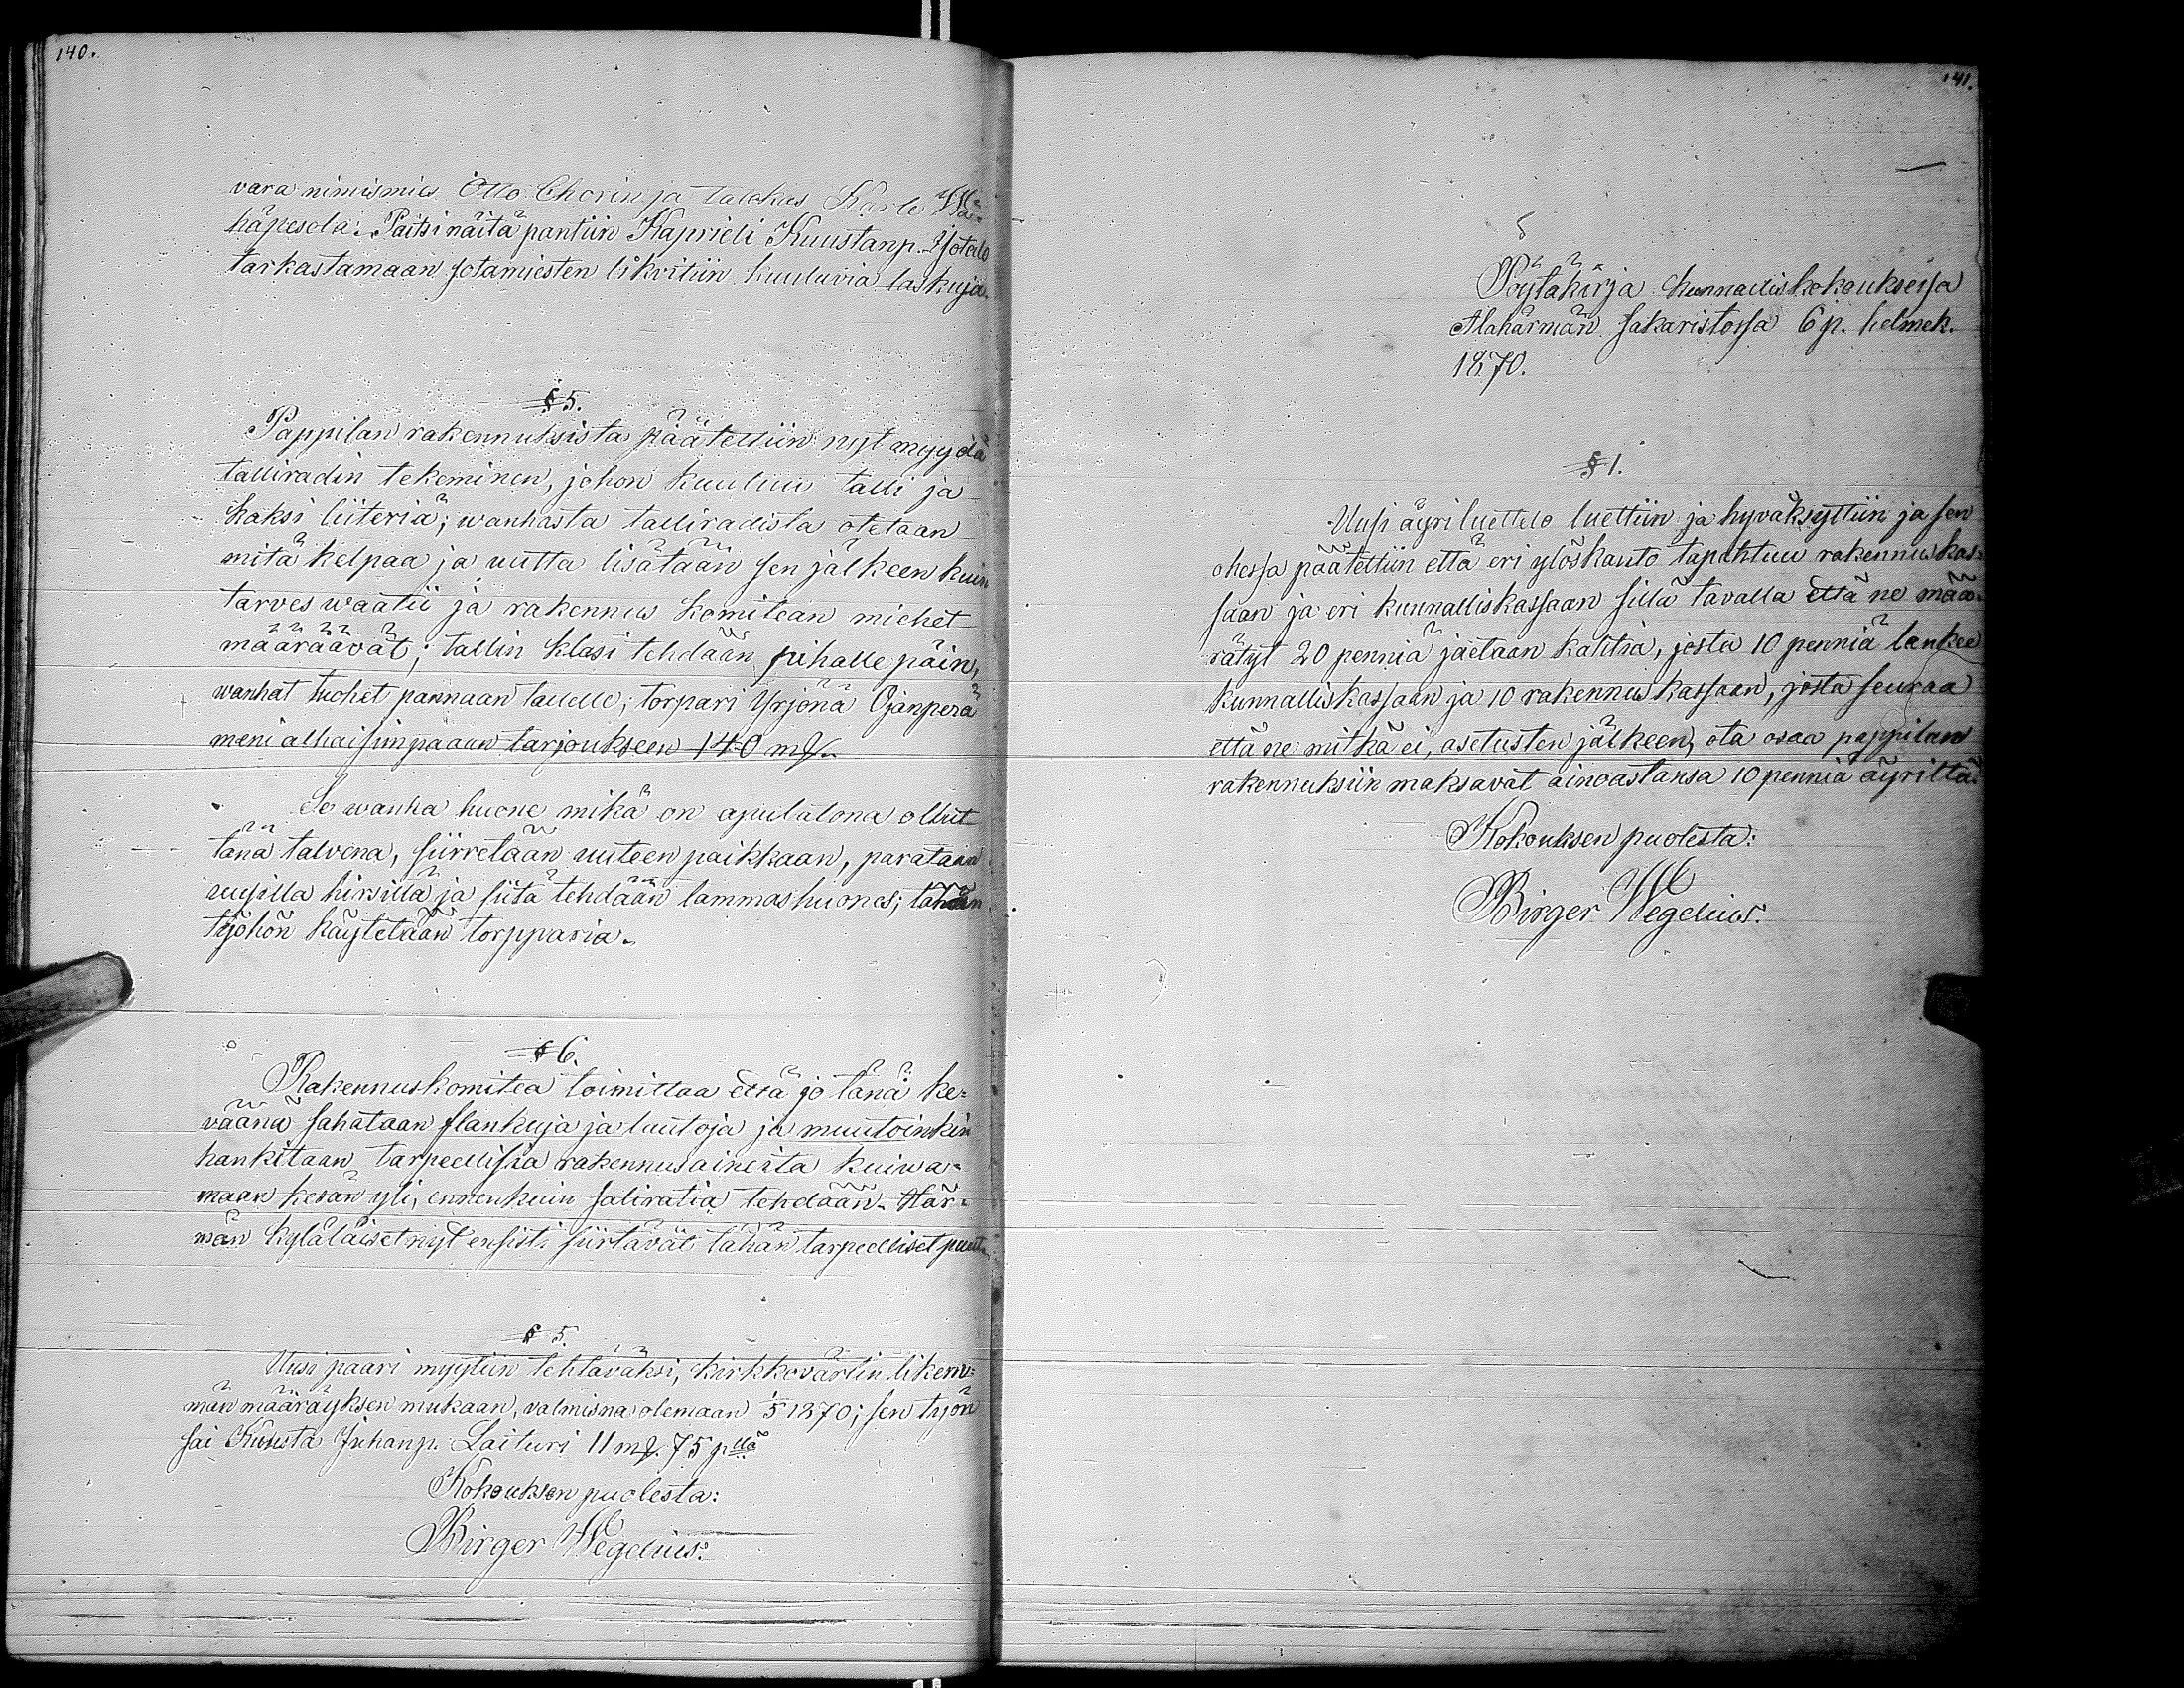 140.
vara nimismies Otto Thorin ja talokas Kaarle Wä-
häpesola. Paitsi näitä pantiin Kaprieli Kuustanp. Ijotalo
tarkastamaan sotamiesten likvitiin kuuluvia laskuja.
§ 5.
Pappilan rakennuksista päätettiin nyt myydä
talliradin tekeminen, johon kuuluu talli ja
kaksi liiteriä; wanhasta talliradista otetaan
mitä kelpaa ja uutta lisätään sen jälkeen kuin
tarves waatii ja rakennus komitean miehet
määräävät; tallin klasi tehdään pihalle päin,
wanhat tuohet pannaan takelle; torpari Yrjönä Ojanperä
meni alhaisimpaaan tarjoukseen 140 mk.
Se wanha huone mikä on apulatona ollut
tänä talvena, siirretään uuteen paikkaan, parataan
uusilla hirsillä ja siitä tehdään lammashuones; tähän
työhön käytetään torpparia.
§ 6.
Rakennuskomitea toimittaa että jo tänä ke-
väänä sahataan flankuja ja lautoja ja muutoinkin
hankitaan tarpeellisia rakennusaineita kuiwa-
maan kesän yli, ennenkuin saliratia tehdään. Här-
män kyläläiset nyt ensisti siirtävät tähän tarpeelliset puut.
§ 5.
Uusi paari myytiin tehtäväksi, kirkkovärtin likem-
män määräyksen mukaan, valmisna olemaan 1/5 1870; sen työn
sai Kuusta Juhanp. Laituri 11 mk. 75 p:llä
Kokouksen puolesta:
Birger Wegelius.
141.
Pöytäkirja kunnalliskokouksessa
Alahärmän sakaristossa 6 p. helmek.
1870.
§ 1.
Uusi äyriluettelo luettiin ja hyväksyttiin ja sen
ohessa päätettiin että eri ylöskanto tapahtuu rakennuskas-
saan ja eri kunnalliskassaan sillä tavalla että ne mää-
rätyt 20 penniä jaetaan kahtia, josta 10 penniä lankee
kunnalliskassaan ja 10 rakennuskassaan, josta seuraa
että ne mitkä ei, asetusten jälkeen, ota osaa pappilan
rakennuksiin maksavat ainoastansa 10 penniä äyriltä.
Kokouksen puolesta:
Birger Wegelius.